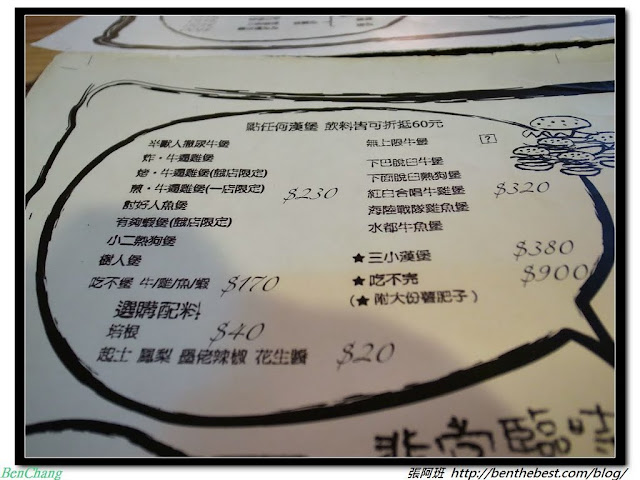 點任何漢堡 飲料皆可折抵60元
半獸人撒尿牛堡
炸・牛還雞堡
烤・牛還雞堡(貳店限定)
煎・牛還雞堡(一店限定) $230
討好人魚堡
有夠蝦堡(貳店限定)
小二熱狗堡
樹人堡
吃不堡 牛/雞/魚/蝦 $170
選購配料
培根 $40
起士 鳳梨 墨佬辣椒 花生醬 $20
無上限牛堡 ?
下巴脫臼牛堡
下面脫臼熱狗堡
紅白合唱牛雞堡 $320
海陸戰隊雞魚堡
水都牛魚堡
★三小漢堡 $380
★吃不完 $900
(★附大份薯肥子)
BenChang
張阿班 http://benthebest.com/blog/